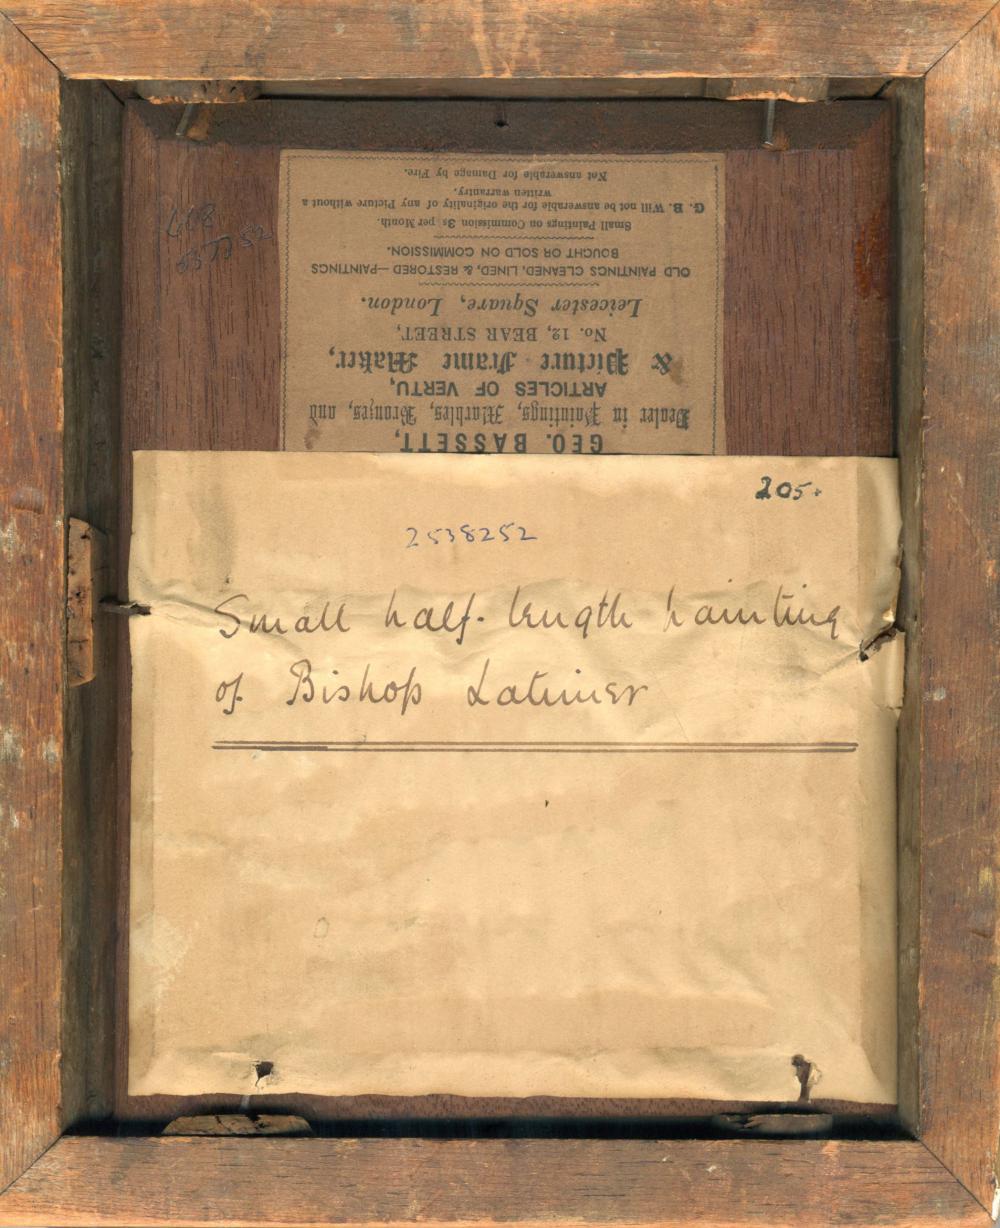 GEO. BASSETT,
Dealer in Paintings, Marbles, Bronzes, and
ARTICLES OF VERTU,
& Picture Frame Maker,
No. 12, BEAR STREET,
Leicester Square, London.
OLD PAINTINGS CLEANED, LINED, & RESTORED—PAINTINGS
BOUGHT OR SOLD ON COMMISSION.
Small Paintings on Commission 3s per Month.
G. B. Will not be answerable for the originality of any Picture without a
written warranty.
Not answerable for Damage by Fire.
205.
2538252
Small half-length painting
of Bishop Latimer